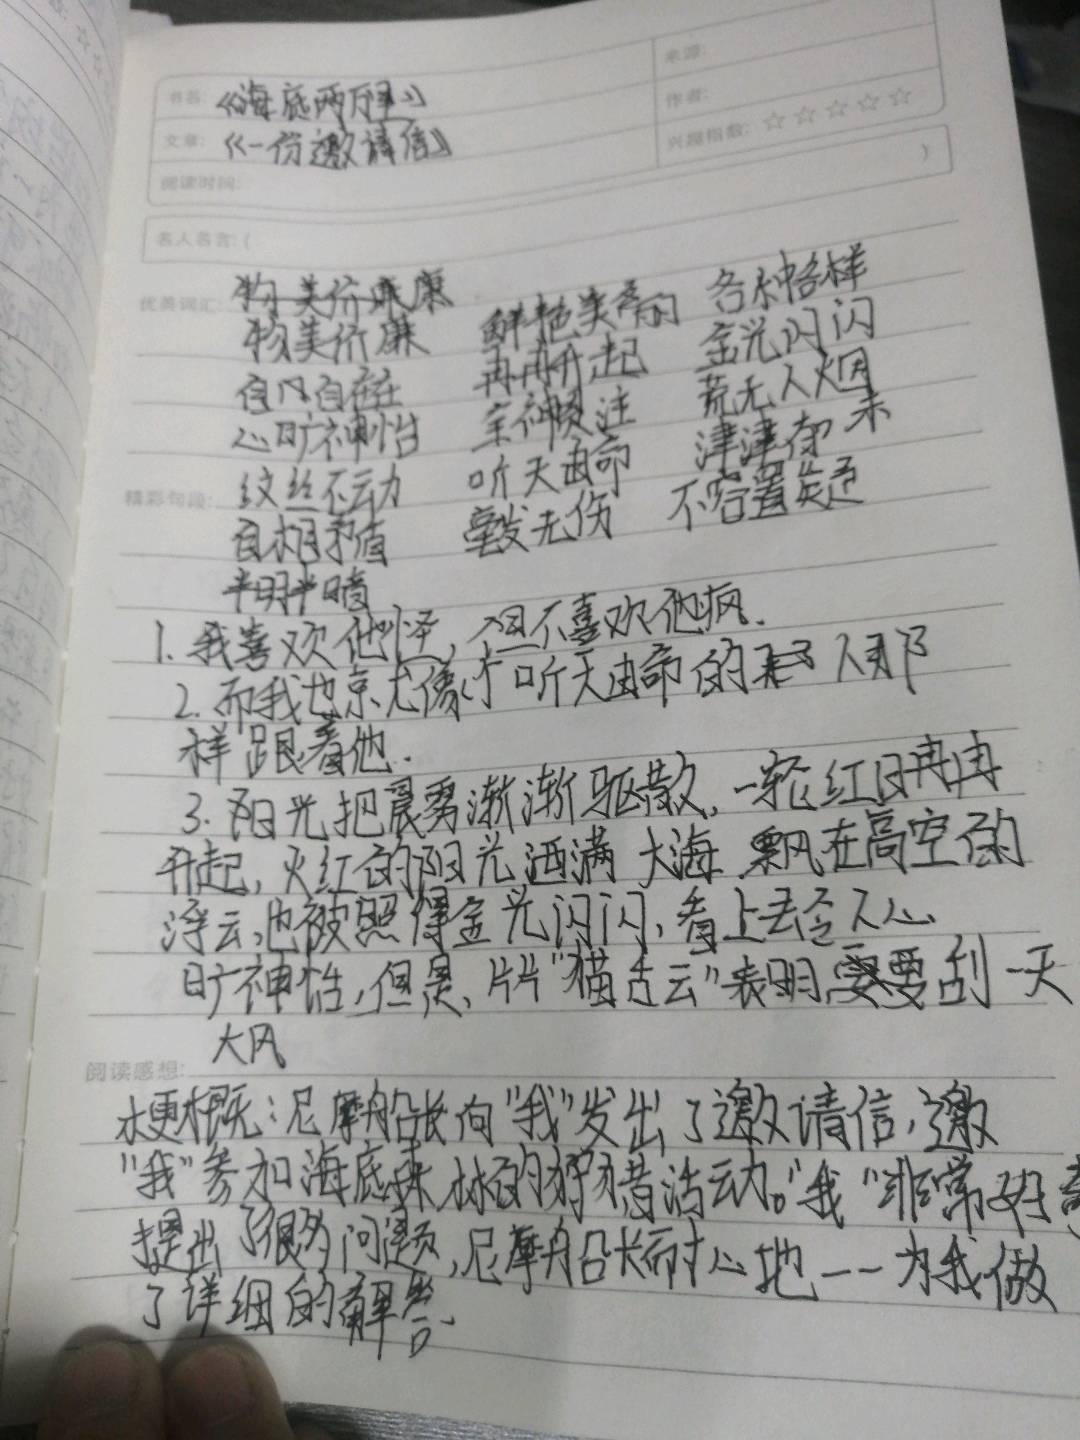 书名: 《海底两万里》
来源:
作者:
文章: 《一份邀请信》
兴趣指数: ☆☆☆☆☆
阅读时间:
名人名言: ( )
优美词汇:
物美价廉 鲜艳美丽 各种各样
自以自在 冉冉升起 金光闪闪
心旷神怡 全神贯注 荒无人烟
纹丝不动 听天由命 津津有味
精彩句段:
自相矛盾 毫发无伤 不容置疑
半明半暗
1. 我喜欢他怪,但不喜欢他疯.
2. 而我也就像个听天由命的 人那
样跟着他.
3. 阳光把晨雾渐渐驱散,一轮红日冉冉
升起,火红的阳光洒满大海 飘在高空的
浮云,也被照得金光闪闪,看上去令人心
旷神怡,但是,片片“猫舌云”表明,要刮一天
大风
阅读感想:
梗概:尼摩船长向“我”发出了邀请信,邀
“我”参加海底森林的狩猎活动。“我”非常好奇
提出了很多问题,尼摩船长耐心地一一为我做
了详细的解答.